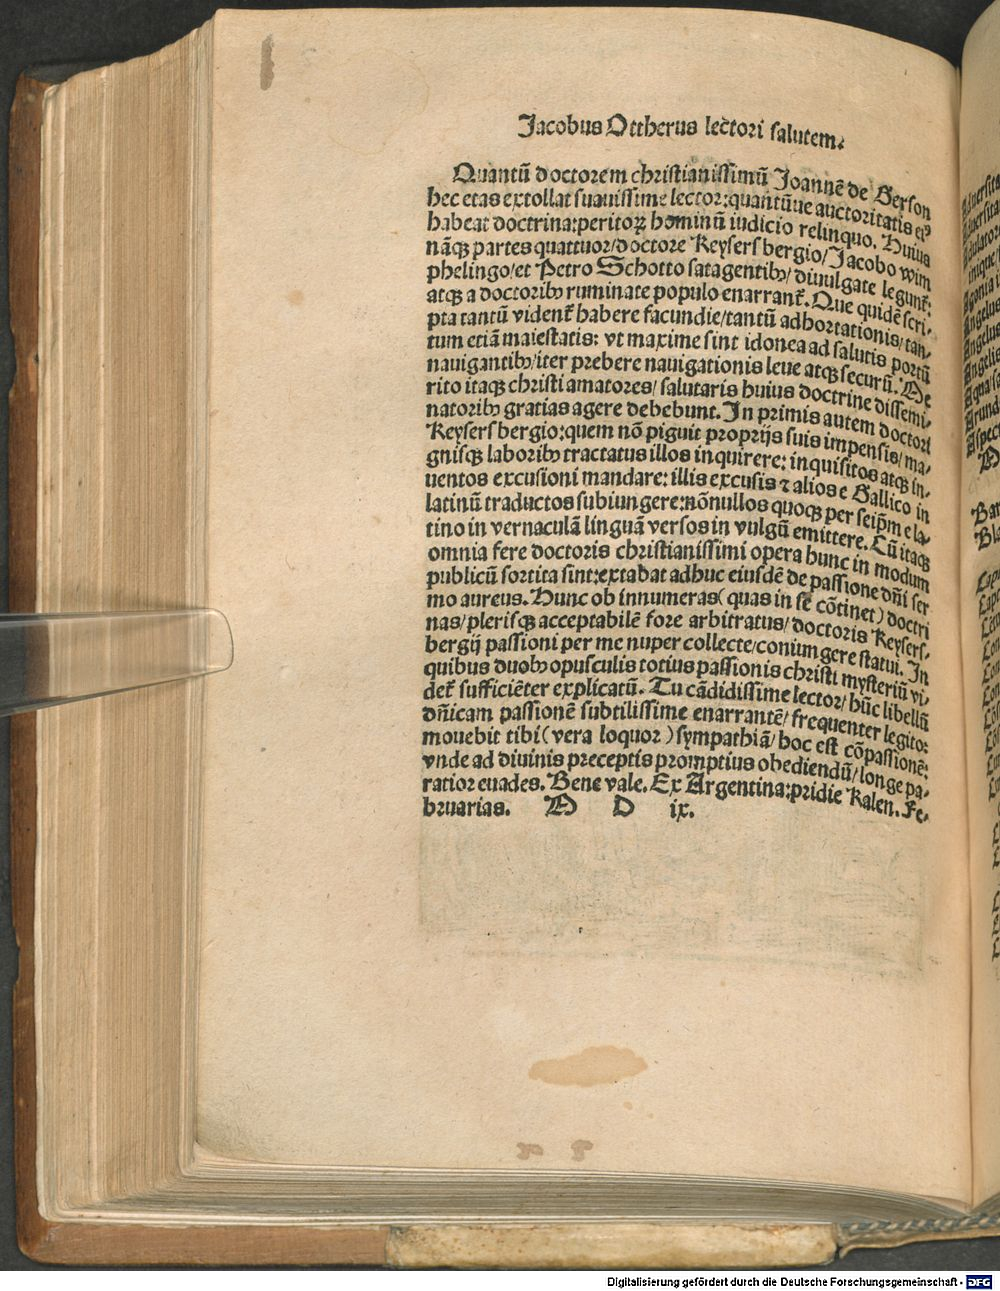 Jacobus Ottherus lectori salutem.
Quantũ doctorem christianissimũ Joannẽ de Gerson
hec etas extollat suauissime lector: quantũue auctoritatis eiꝰ
habeat doctrina: peritoꝝ hominũ iudicio relinquo. Huius
nãqꝫ partes quattuor/ doctore Keysersbergio/ Jacobo wim
phelingo/ et Petro Schotto satagentibꝰ/ diuulgate legunt̃:
atqꝫ a doctoribꝰ ruminate populo enarrant̃. Que quidẽ scri-
pta tantũ vident̃ habere facundie/ tantũ adhortationis/ tan-
tum etiã maiestatis: vt maxime sint idonea ad salutis portũ
nauigantibꝰ/ iter prebere nauigationis leue atqꝫ securũ. Me
rito itaqꝫ christi amatores/ salutaris huius doctrine dissemi-
natoribꝰ gratias agere debebunt. In primis autem doctori
Keysersbergio: quem nõ piguit proprijs suis impensis/ ma-
gnisqꝫ laboribꝰ tractatus illos inquirere: inquisitos atqꝫ in-
uentos excusioni mandare: illis excusis ⁊ alios e Gallico in
latinũ traductos subiungere: nõnullos quoqꝫ per seip̃m e la-
tino in vernaculã linguã versos in vulgũ emittere. Cũ itaqꝫ
omnia fere doctoris christianissimi opera hunc in modum
publicũ sortita sint: extabat adhuc eiusdẽ de passione dñi ser
mo aureus. Hunc ob innumeras (quas in se cõtinet) doctri
nas/ plerisqꝫ acceptabilẽ fore arbitratus/ doctoris Keysers-
bergij passioni per me nuper collecte/ coniungere statui. In
quibus duobꝰ opusculis totius passionis christi mysteriũ vi-
det̃ sufficiẽter explicatũ. Tu cãdidissime lector/ hũc libellũ
dñicam passionẽ subtilissime enarrantẽ/ frequenter legito:
mouebit tibi (vera loquor) sympathiã/ hoc est cõpassionẽ:
vnde ad diuinis preceptis promptius obediendũ/ longe pa-
ratior euades. Bene vale. Ex Argentina: pridie Kalen. Fe-
bruarias. M D ix.
Digitalisierung gefördert durch die Deutsche Forschungsgemeinschaft - DFG